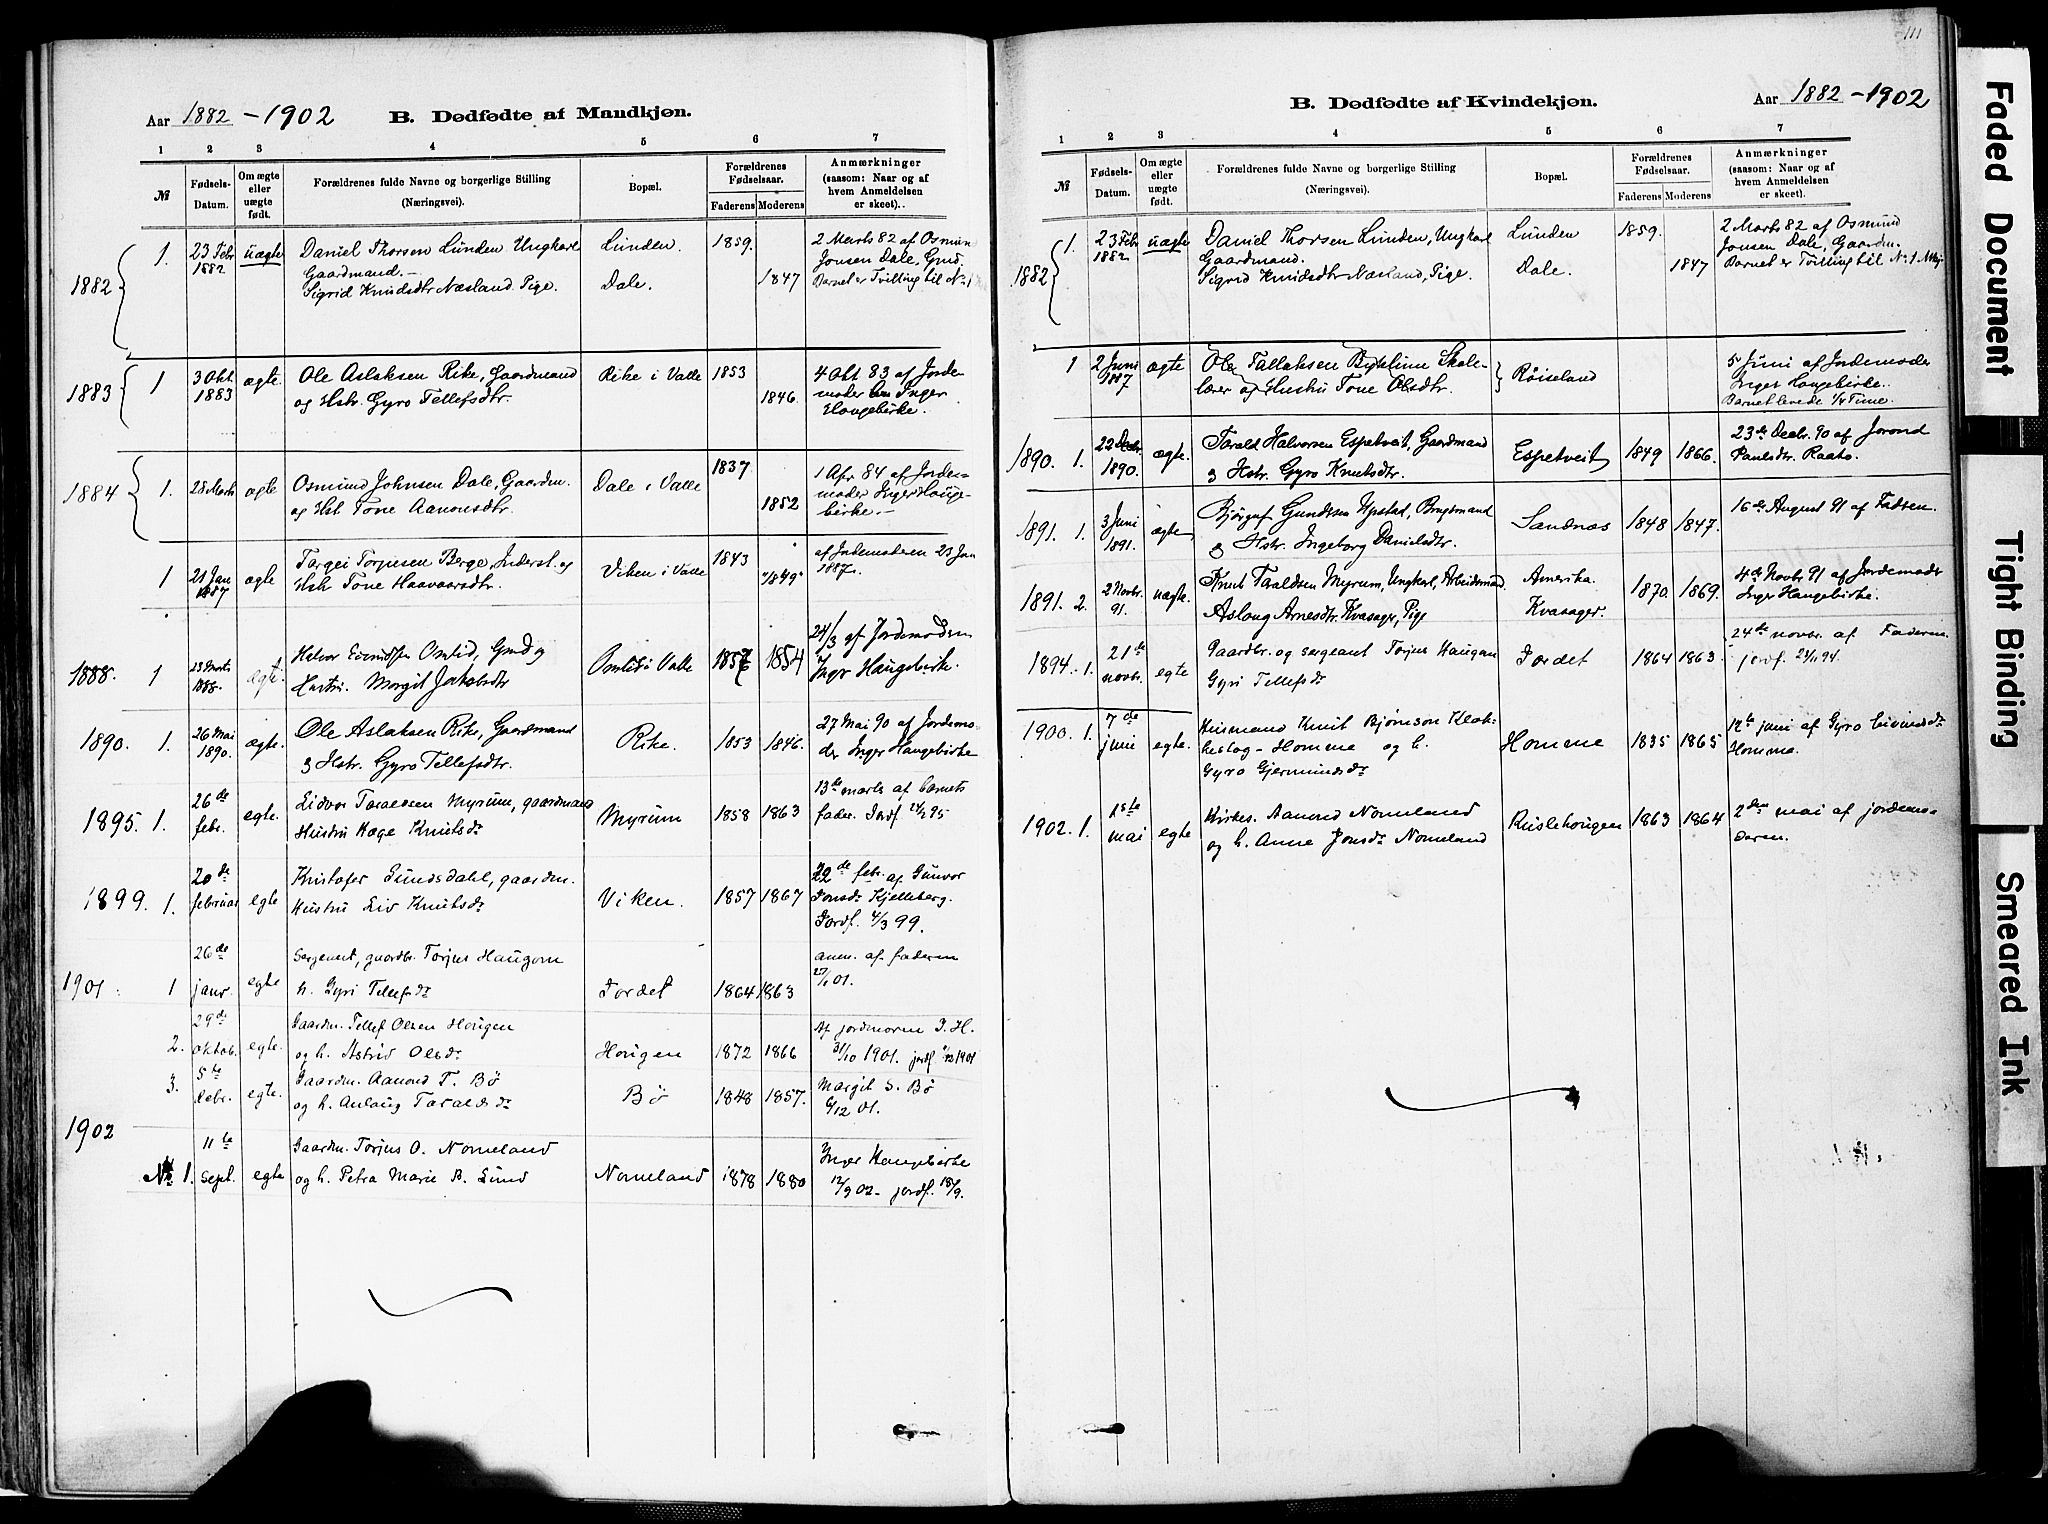 Aar 1882 - 1902 B. Dødfødte af Mandkjøn.
1 2 3 4 5 6 7
№ Fødsels-Datum. Om ægte eller uægte født. Forældrenes fulde Navne og borgerlige Stilling (Næringsvei). Bopæl. Forældrenes Fødselsaar. Faderens Moderens Anmærkninger (saasom: Naar og af hvem Anmeldelsen er skeet)..
1882 1. 23 Febr 1882 uægte Daniel Thorsen Lunden Ungkarl Lunden. 1859. 2 Marts 82 af Osmun
Gaardmand.- Jonsen Dale, Gmd.
Sigrid Knudsdtr Næsland. Pige. Dale. 1847 Barnet er Tvilling til No 1
1883 1 3 Okt 1883 ægte. Ole Aslaksen Rike, Gaardmand Rike i Valle 1853 4 Okt 83 af Jorde-
og Hstr. Gyro Tellefsdtr. 1846. moder Inger
Haugebirke.
1884 1. 28 Marts ægte Osmund Johnsen Dale, Gaardm. Dale i Valle 1837 1 Apr 84 af Jorde-
og Hst Tone Aanonsdtr. 1852 moder Inger Hauge-
birke.-
1 21 Jan 1887 ægte Targei Torjusen Berge, Inderst. og Viken i Valle 1843 af Jordemoderen 23 Jan
Hstr Tone Haavaarsdtr. 1849. 1887.
1888. 1 23 Marts 1888. ægte. Halvor Omlid, Gmd og Omlid i Valle 1857 1854 24/3 af Jordemoderen
Hustru. Margit Jakobsdtr Inger Haugebirke.
1890. 1. 26 Mai 1890. ægte. Ole Aslaksen Rike, Gaardmand Rike. 1853 1846. 27 Mai 90 af Jordemo-
& Hstr. Gyro Tellefsdtr. der Inger Haugebirke
1895. 1. 26de febr. egte. Eidvor Taraldsen Myrum, gaardmand Myrum 1858 1863 13de marts af barnets
Hustru Hæge Knutsdr fader. Jordf. 24/2 95
1899. 1. 20de februar egte Kristofer Lundsdahl, gaardm. Viken. 1857 1867 22de febr. af Gunvor
Hustru Liv Knutsdr Jonsdr Kjelleberg.
Jordf. 4/3 99.
1901. 1 26de janr. egte Sergeant, gaardbr. Torjus Haugom anm. af faderen
h. Gyri Tellefsdr Jordet 1864 1863 27/1 01.
2. 29de oktob. egte. Gaardm. Tellef Olsen Hougen Af jordmoren I. H.
og h. Astrid Olsdr Hougen 1872 1866 31/10 1901. jordf 1901
3. 5te debr. egte. Gaardm. Aanond T. Bø Margit S. Bø
og h. Anlaug Taraldsdr Bø 1848 1857. 6/12 01.
1902
№ 1. 11te sept. egte Gaardm. Torjus O. Nomeland Inger Haugebirke
og h. Petra Marie B. Lund Nomeland 1878 1880 12/9 02- jordf. 18/9.
111
B. Dødfødte af Kvindekjøn. Aar 1882 - 1902
1 2 3 4 5 6 7
№ Fødsels-Datum. Om ægte eller uægte født. Forældrenes fulde Navne og borgerlige Stilling (Næringsvei). Bopæl. Forældrenes Fødselsaar. Faderens Moderens Anmærkninger (saasom: Naar og af hvem Anmeldelsen er skeet).
1882 1. 23 Febr 1882. uægte Daniel Thorsen Lunden, Ungkarl Lunden 1859. 2 Marts 82 af Osmund
Gaardmand. Jonsen Dale, Gaardm.
Sigrid Knudsdtr Næsland, Pige. Dale. 1847 Barnet er Tvilling til No 1
1 2 Juni 1887 ægte Ole Tallaksen Skole- Røiseland 5 Juni af Jordemoder
lærer og Hustru Tone Olsdtr. Inger Haugebirke.
Barnet levede 1/4 Time.
1890. 1. 22 Decbr 1890. ægte. Tarald Halvorsen Espetveit, Gaardmand Espetveit 1849 1866. 23de Decbr. 90 af Jorond
& Hstr. Gyro Knutsdtr. Paulsdtr. Raabo.
1891. 1. 3 Juni 1891. ægte Bjørguf Gundersen Upstad, Brugsmand Sandnæs 1848 1847. 16de August 91 af Faderen.
& Hstr. Ingeborg Danielsdtr.
1891. 2. 2 Novbr. 91. uægte. Knut Taraldsen Myrum, Ungkarl, Arbeidsmand Amerika. 1870. 1869. 4de Novbr 91 af Jordemoder
Aslaug Arnesdtr. Kvasager, Pige Kvasager. Inger Haugebirke.
1894. 1. 21de novbr. egte Gaardbr. og sergeant Torjus Haugom Jordet 1864 1863. 24de novbr. af Faderen
Gyri Tellefsdr jordf. 24/11 94.
1900. 1. 7de juni egte. Husmand Knut Bjørnson Klok- Homme 1835 1865 12te juni af Gyro Eivindsdr
keslog - Homme og h. Homme.
Gyro Gjermundsdr
1902. 1. 1ste mai egte Kirkes. Aanond Nomeland Rislehougen 1863 1864 2den mai af jordemo-
og h. Anne Jonsdr Nomeland deren.
Faded Document
Tight Binding
Smeared Ink